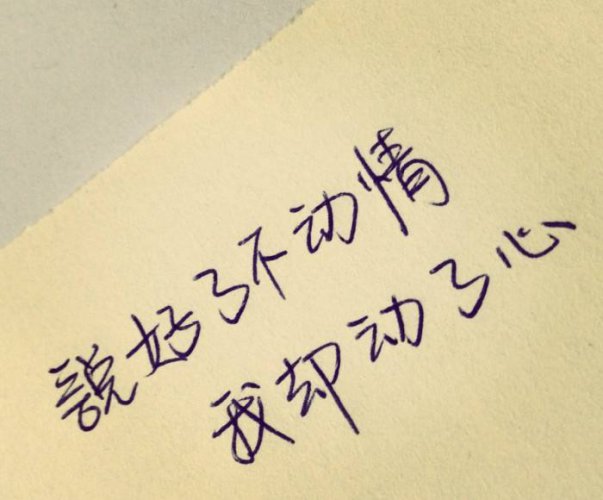 說好了不动情
我却动了心